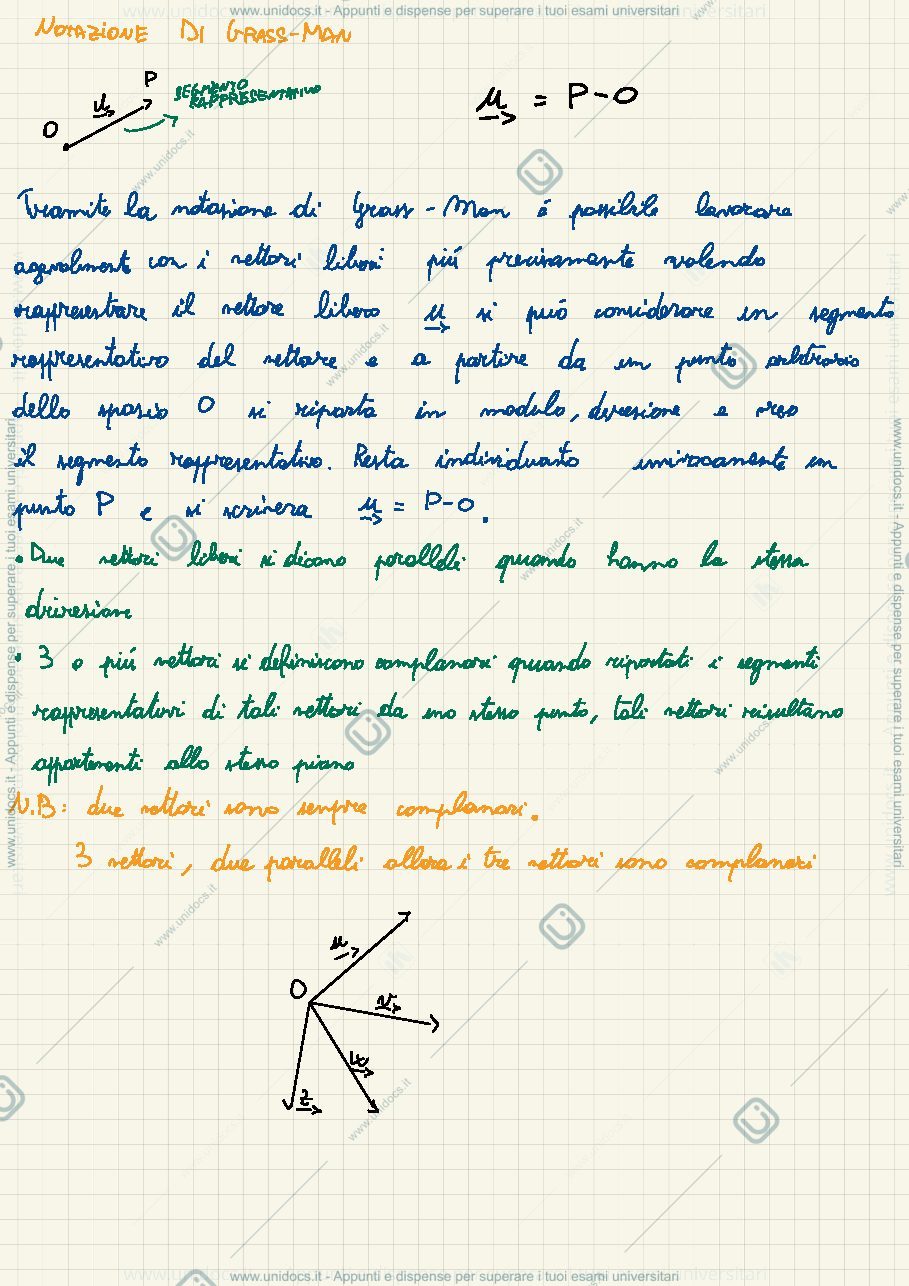 www.unidocs.it - Appunti e dispense per superare i tuoi esami universitari
NOTAZIONE DI GRASS-MAN
O u P SEGMENTO
RAPPRESENTATIVO
u = P-O
Tramite la notazione di Grass-Man é possibile lavorare
agevolmente con i vettori liberi piú precisamente volendo
rappresentare il vettore libero u si puó considerare un segmento
rappresentativo del vettore e a partire da un punto arbitrario
dello spazio O si riporta in modulo, direzione e verso
il segmento rappresentativo. Resta individuato univocamente un
punto P e si scriverá u = P-O.
• Due vettori liberi si dicono paralleli quando hanno la stessa
direzione
• 3 o piú vettori si definiscono complanari quando riportati i segmenti
rappresentativi di tali vettori da uno stesso punto, tali vettori risultano
appartenenti allo stesso piano
N.B: due vettori sono sempre complanari.
3 vettori, due paralleli allora i tre vettori sono complanari
u
O
v
w
z
www.unidocs.it - Appunti e dispense per superare i tuoi esami universitari